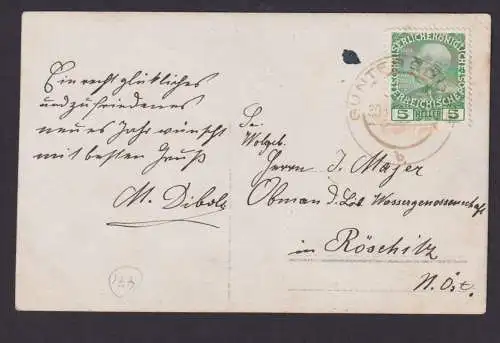 Ein recht glückliches
und zufriedenes
neues Jahr wünscht
mit besten Gruß
M. Dibole
Sr.
Wolgeb.
Herrn J. Mayer
Obman d. Löb. Wassergenossenschaft
in Röschitz
N. Öst.
KAISERLICHE KÖNIGLICHE
ÖSTERREICHISCHE
5 HELLER 5
GUNTERSDORF
b